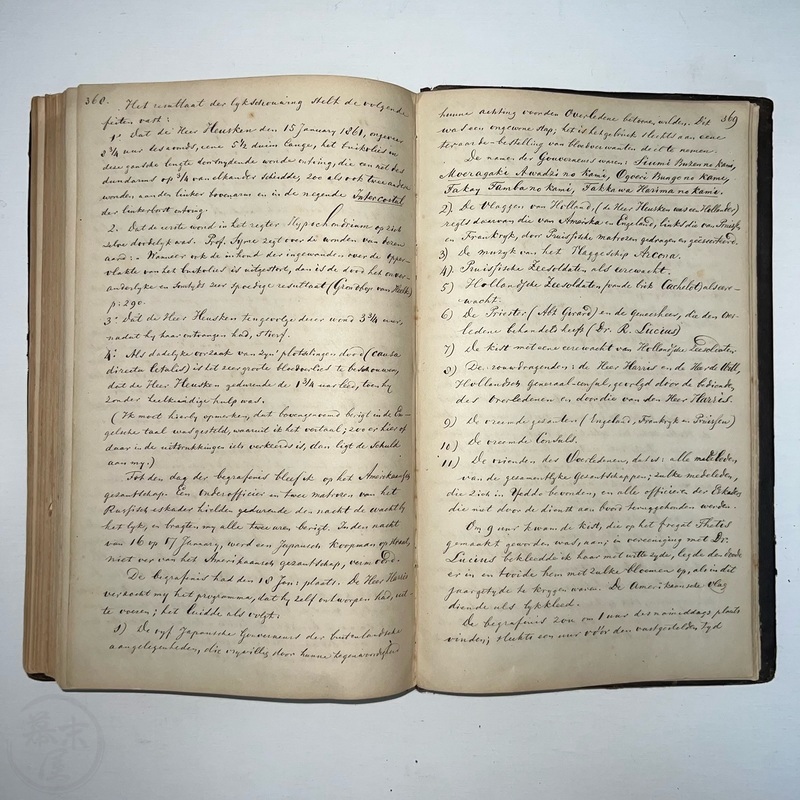 360.
Het resultaat der lykschouwing stelt de volgende
feiten vast:
1° Dat de Heer Heusken den 15 January 1861, ongeveer
2 3/4 uur des avonds, eene 5 1/2 duim lange, het buikvlies in
deze gansche lengte doorsnydende wonde ontving, die een
dundarms op 3/4 van elkander scheidde, zoo als ook twee andere
wonden aan den linker bovenarm en in de negende Intercostal
der linkerborst ontving.
2. Dat de eerste wond in het regter Hypochondrium op zich
zelve doodelyk was. Prof. Syme zegt over de wonden van dezen
aard: "Wanneer ook de inhoud der ingewanden over de opper-
vlakte van het buikvlies is uitgestort, dan is de dood het onver-
anderlyke en zeer spoedige resultaat (
p: 290.
3° Dat de Heer Heusken tengevolge dezer wond 3 3/4 uur,
nadat hy haar ontvangen had, stierf.
4° Als dadelyke oorzaak van zyn' plotselingen dood (causa
directa letalis) is het zeer groote bloedverlies te beschouwen,
dat de Heer Heusken gedurende de 1 3/4 uur leed, toen hy
zonder heelkundige hulp was.
(Ik moet hierby opmerken, dat bovengenoemd berigt in de En-
gelsche taal was gesteld, waaruit ik het vertaal; zoo er hier of
daar in de uitdrukkingen iets verkeerds is, dan ligt de schuld
aan my.)
Tot den dag der begrafenis bleef ik op het Amerikaansch
gezantschap. Een onderofficier en twee matrozen van het
Pruisisch eskader hielden gedurende den nacht de wacht by
het lyk, en bragten my alle twee uren berigt. In den nacht
van 16 op 17 January, werd een Japansch koopman op straat,
niet ver van het Amerikaansch gezantschap, vermoord.
De begrafenis had den 18 Jan: plaats. De Heer Harris
verzocht my het programma, dat hy zelf ontworpen had, uit
te voeren; het luidde als volgt:
1) De vyf Japansche Gouverneurs der buitenlandsche
aangelegenheden, die vrywillig door hunne tegenwoordigheid
369
hunne achting voor den Overledene betoonen wilden. Dit
was een ongewone stap; het is het gebruik slechts aan eene
ter aarde-bestelling van bloedverwanten deel te nemen.
De namen der Gouverneurs waren: Sinmi Buzen no kami,
Mooragaki Awadzi no kami, Ogoeri Bungo no kami,
Takay Tamba no kami, Takkawa Harima no kami.
2) De Vlaggen van Holland, (de Heer Heusken was een Hollander)
regts daarvan die van Amerika en Engeland, links die van Pruisen
en Frankryk, door Pruisische matrozen gedragen en geëscorteerd.
3) De muzyk van het Vlaggeschip Arcona.
4) Pruisische Zeesoldaten als eerewacht.
5) Hollandsche Zeesoldaten (van de brik Cachelot) als eere-
wacht.
6) De Priester (Abt Girard) en de geneesheer, die den Over-
ledene behandeld heeft (Dr. R. Lucius)
7) De kist met eene eerewacht van Hollandsche Zeesoldaten.
8) De rouwdragenden: de Heer Harris en de Heer de Witt,
Hollandsch Generaal-consul, gevolgd door de bedienden
des Overledenen en door die van den Heer Harris.
9) De vreemde gezanten (Engeland, Frankryk en Pruissen)
10) De vreemde Consuls.
11) De vrienden des Overledenen, dat is: alle medeleden,
van de gezamentlyke Gezantschappen; zulke medeleden,
die zich in Yeddo bevonden, en alle officieren der Eskaders,
die niet door de dienst aan boord teruggehouden werden.
Om 9 uur kwam de kist, die op het fregat Thetis
gemaakt geworden was, aan; in vereeniging met Dr:
Lucius bekleedde ik haar met witte zyde, legde den doode
er in en tooide hem met zulke bloemen op, als in dit
jaargetyde te krygen waren. De Amerikaansche vlag
diende als lykkleed.
De begrafenis zou om 1 uur des namiddags plaats
vinden; slechts een uur vóór den vastgestelden tyd